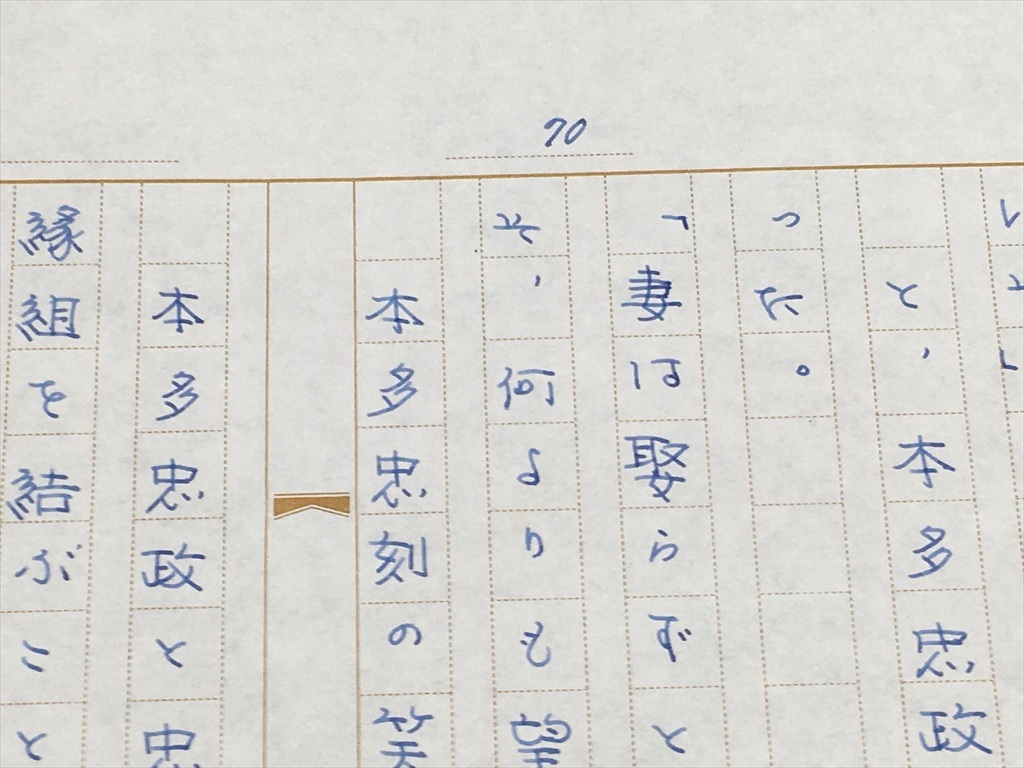 70
と、本多忠政
った。
「妻は娶らずと
そ、何よりも望
本多忠刻の笑
本多忠政と忠
縁組を結ぶこと